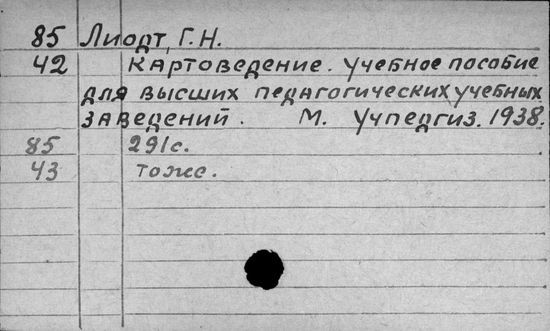 85 Лиодт, Г.Н.
42 Картоведение. Учебное пособие
для высших педагогических учебных
заведений. М. Учпедгиз. 1938.
85 291с.
43 тоже.